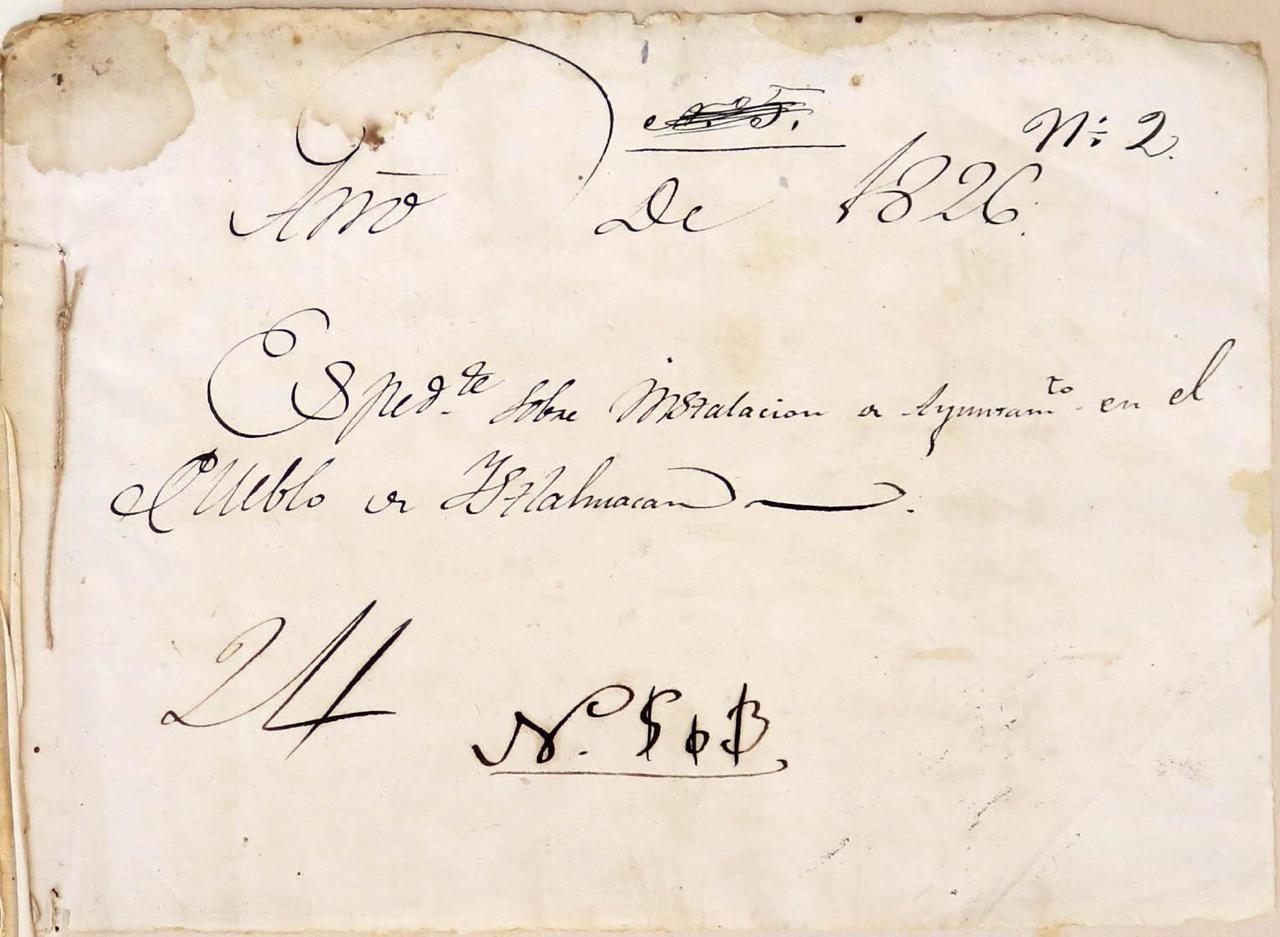 Nº 2.
Año De 1826.
Espedte sobre Instalacion de Ayuntamto en el
Pueblo de Istlahuacan.
24
N.